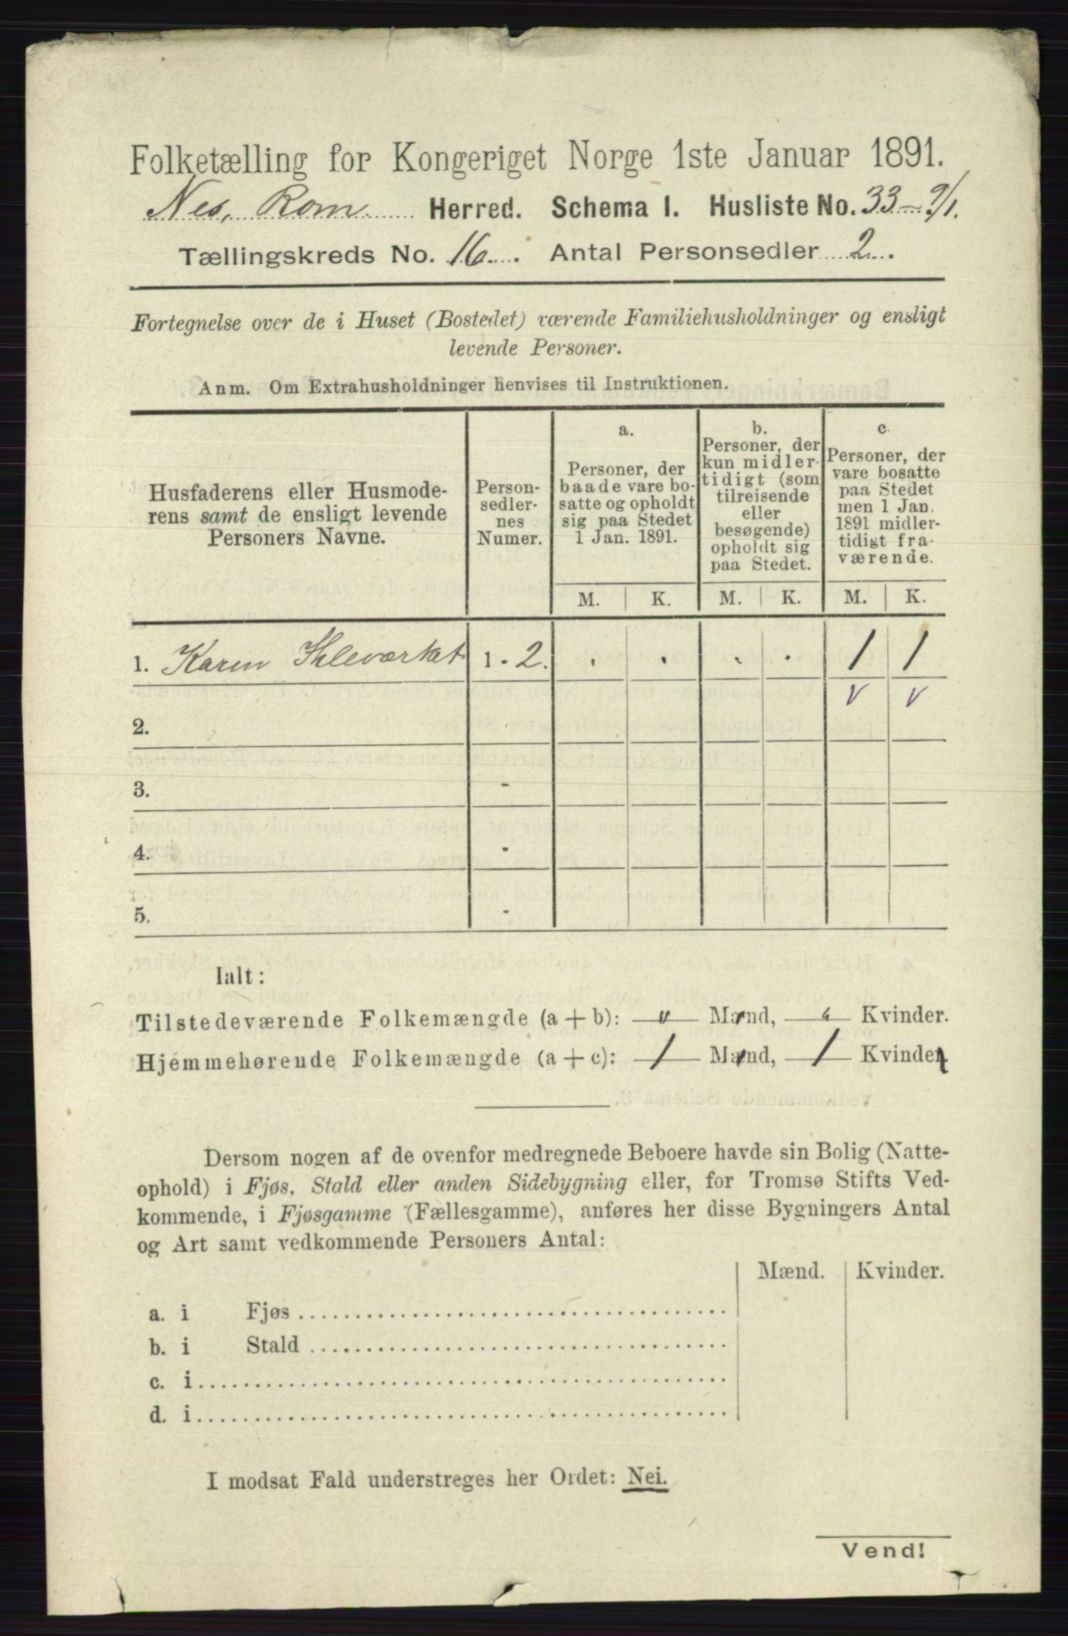 Folketælling for Kongeriget Norge 1ste Januar 1891.
Nes, Rom. Herred. Schema I. Husliste No. 33
Tællingskreds No. 16. Antal Personsedler 2.
Fortegnelse over de i Huset (Bostedet) værende Familiehusholdninger og ensligt
levende Personer.
Anm. Om Extrahusholdninger henvises til Instruktionen.
Husfaderens eller Husmode-
rens samt de ensligt levende
Personers Navne.
Person-
sedler-
nes
Numer.
a.
Personer, der
baade vare bo-
satte og opholdt
sig paa Stedet
1 Jan. 1891.
b.
Personer, der
kun midler-
tidigt (som
tilreisende
eller
besøgende)
opholdt sig
paa Stedet.
c.
Personer, der
vare bosatte
paa Stedet
men 1 Jan.
1891 midler-
tidigt fra-
værende.
M. K. M. K. M. K.
1. Karen 1 - 2. . . . . 1 1
v v
2.
3. -
4. -
5. -
Ialt:
Tilstedeværende Folkemængde (a + b): Mænd, Kvinder.
Hjemmehørende Folkemængde (a + c): 1 Mænd, 1 Kvinder.
Dersom nogen af de ovenfor medregnede Beboere havde sin Bolig (Natte-
ophold) i Fjøs, Stald eller anden Sidebygning eller, for Tromsø Stifts Ved-
kommende, i Fjøsgamme (Fællesgamme), anføres her disse Bygningers Antal
og Art samt vedkommende Personers Antal:
Mænd. Kvinder.
a. i Fjøs
b. i Stald
c. i
d. i
I modsat Fald understreges her Ordet: Nei.
Vend!